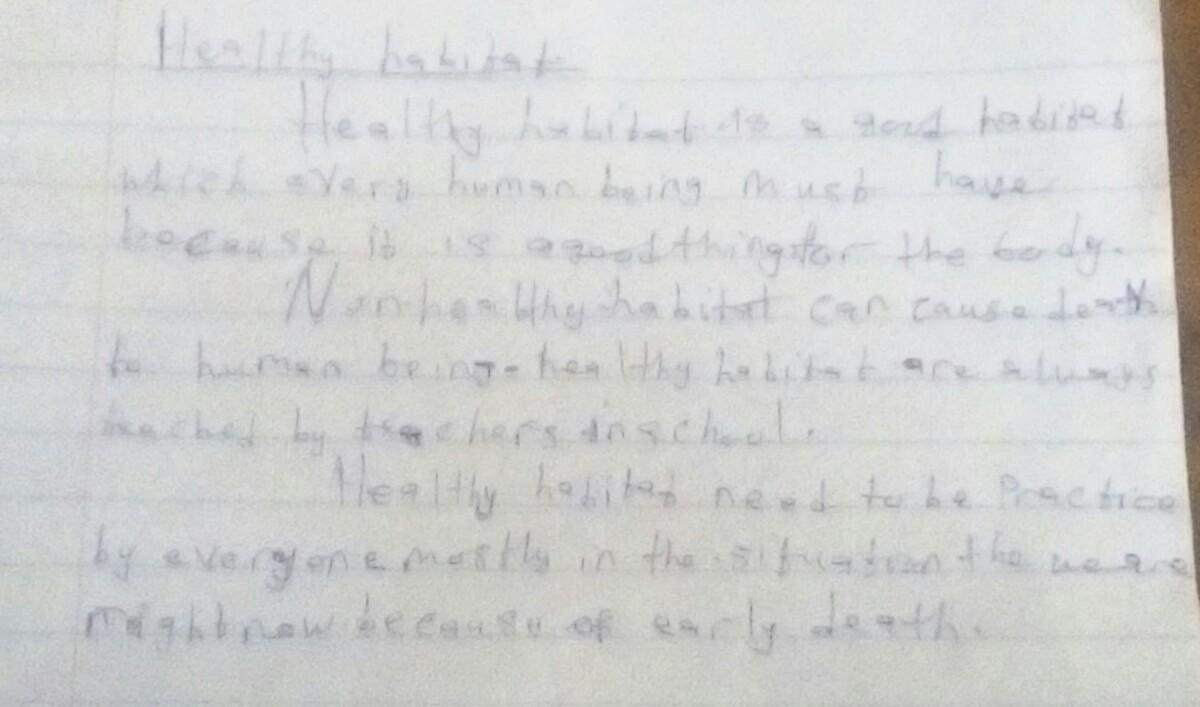 Healthy habitat
Healthy habitat is a good habitat
which every human being must have
because it is a good thing for the body.
Non healthy habitat can cause death
to human being. healthy habitat are always
teached by teachers in school.
Healthy habitat need to be Practice
by everyone mostly in the situation the we are
right now because of early death.